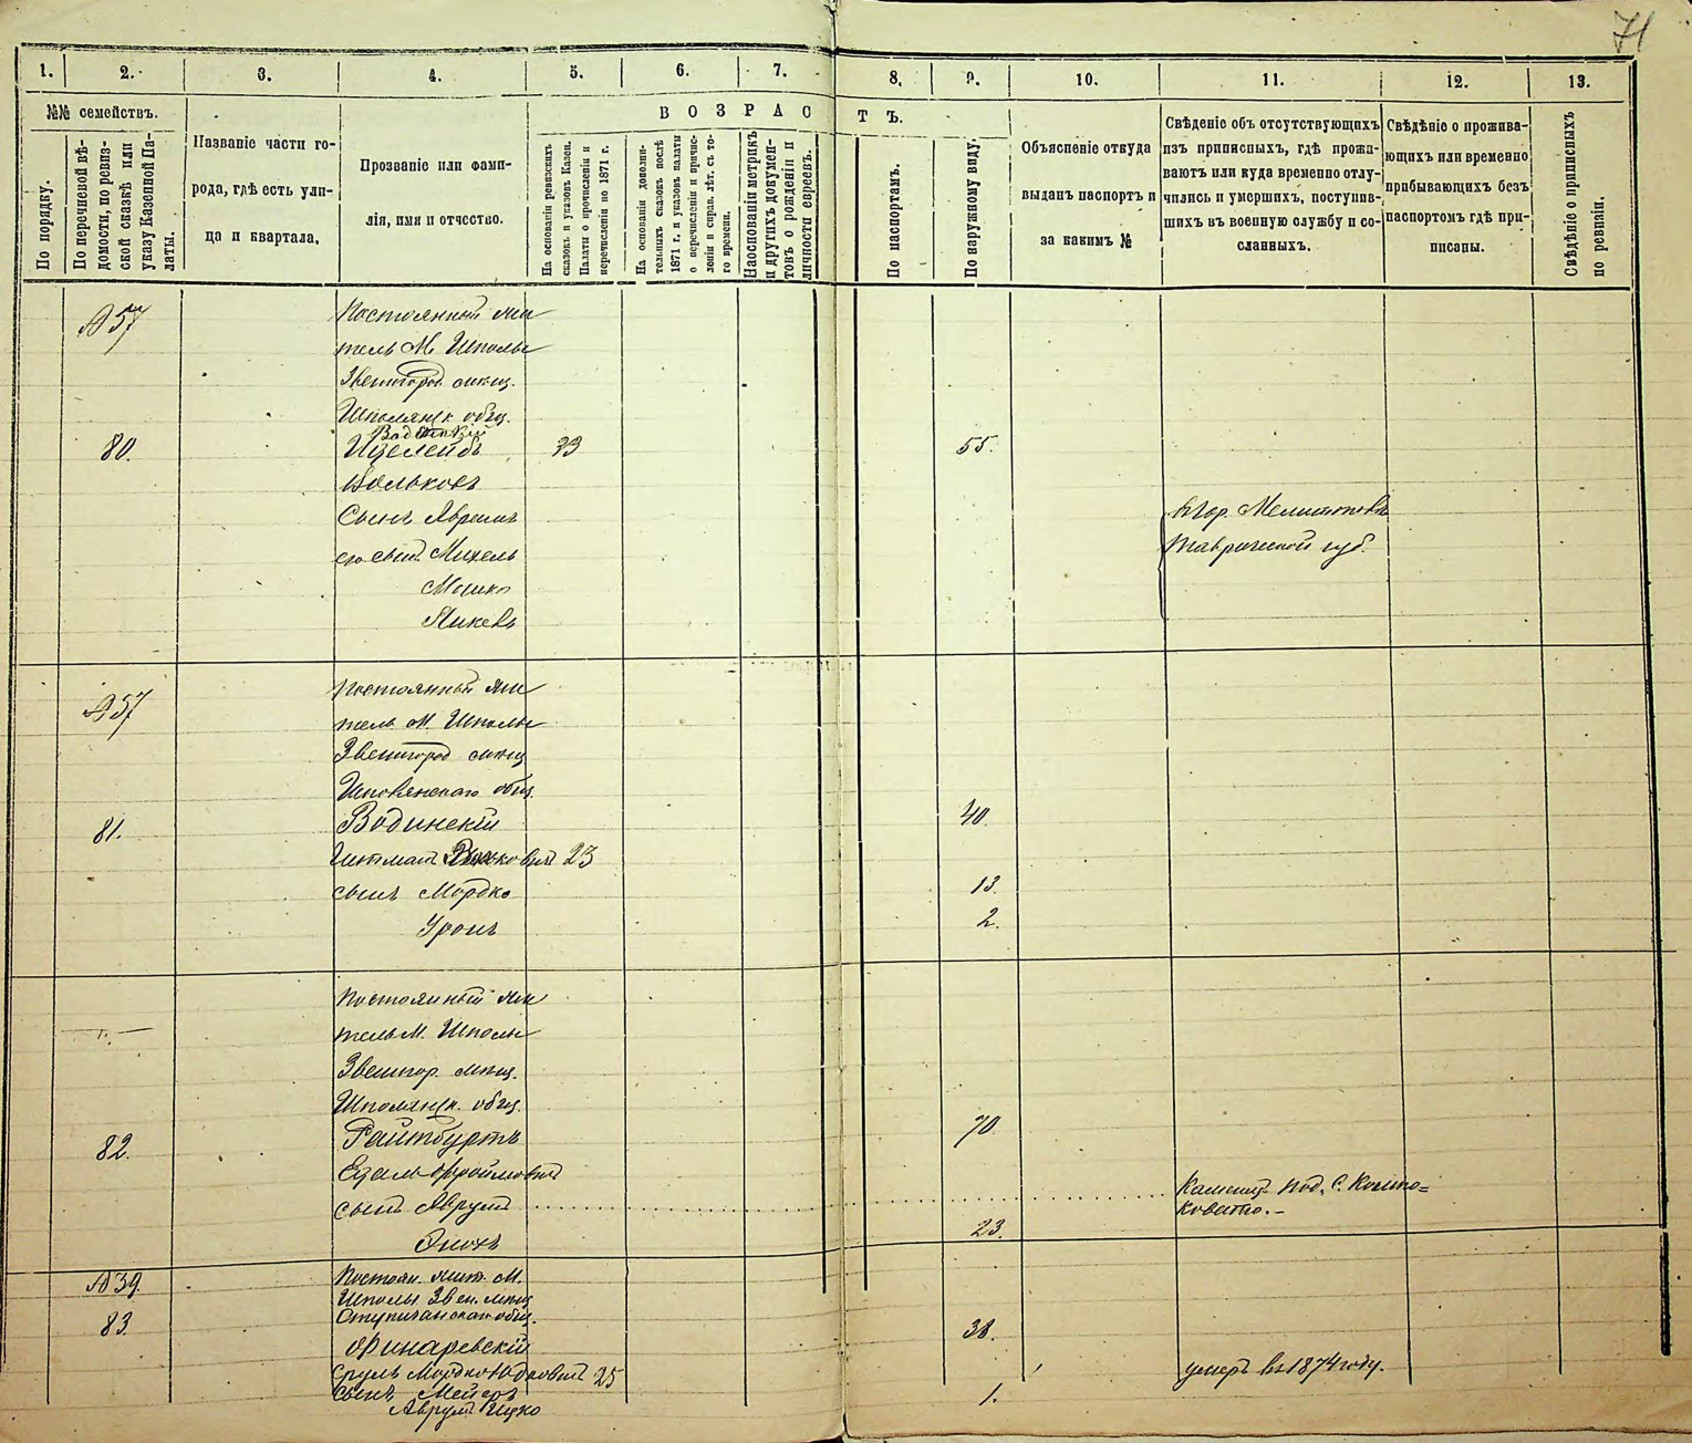 71
1. 2. 3. 4. 5. 6. 7. 8. 9. 10. 11. 12. 13.
№№ семействъ.
По порядку.
По перечневой вѣ-
домости, по ревиз-
ской сказкѣ или
указу Казенной Па-
латы.
Названіе части го-
рода, гдѣ есть ули-
ца и квартала.
Прозваніе или фами-
лія, имя и отчество.
ВОЗРАСТЪ.
На основаніи ревизскихъ
сказокъ и указовъ Казен.
Палаты о причисленіи и
перечисленіи по 1871 г.
На основаніи дополни-
тельныхъ сказокъ послѣ
1871 г. и указовъ палаты
о перечисленіи и причис-
леніи и справ. лѣт. съ то-
го времени.
Наоснованіи метрикъ
и другихъ докумен-
товъ о рожденіи и
личности евреевъ.
По паспортамъ.
По наружному виду.
Объясненіе откуда
выданъ паспортъ и
за какимъ №
Свѣденіе объ отсутствующихъ
изъ приписныхъ, гдѣ прожи-
ваютъ или куда временно отлу-
чились и умершихъ, поступив-
шихъ въ военную службу и со-
сланныхъ.
Свѣдѣніе о прожива-
ющихъ или временно
прибывающихъ безъ
паспортомъ гдѣ при-
писаны.
Свѣдѣніе о приписныхъ
по ревизіи.
№ 57
Постоянный жи
тель М. Шполы
Звенигород. мѣщ.
Шполянск. общ.
80. Ицелейбъ 33 55.
Вольковъ
Сынъ Авремъ
его сын. Михель
Мошко
Янкель
въ гор. Мелитополѣ
Таврической губ.
№ 57
Постоянный жи
тель М. Шполы
Звенигород мѣщ
Шполянскаго общ.
81. Водинскій 40.
Гитманъ 23
сынъ Мордко 13.
Уронъ 2.
Постоянный жи
тель М. Шполы
Звенигор. мѣщ.
Шполянск. общ.
82. Райтбуртъ 70.
Фроймовъ
сынъ Аврумъ
Каменец Под. С.
Энохъ 23.
№ 39.
Постоян. жит. М.
Шполы Звен. мѣщ
83. общ. 38.
Финаревскій
Сруль Мордко 25 умеръ въ 1874 году.
сынъ Мейеръ 1.
Аврумъ Ицко